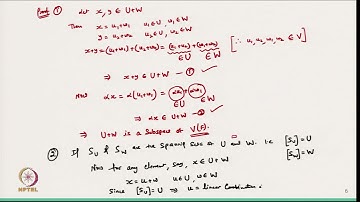 Proof ① Let x, y ∈ U+W
Then x = u₁+w₁ u₁∈U, w₁∈W
y = u₂+w₂ u₂∈U, w₂∈W
x+y = (u₁+w₁)+(u₂+w₂) = (u₁+u₂)+(w₁+w₂) [∵ u₁,u₂,w₁,w₂ ∈ V]
∈U ∈W
⇒ x+y ∈ U+W — ① ✓
Now αx = α(u₁+w₁) = αu₁ + αw₁
∈U ∈W
⇒ αx ∈ U+W — ② ✓
⇒ U+W is a Subspace of V(F).
② If S_U & S_W are the Spanning Sets of U and W. i.e [S_U] = U
[S_W] = W
Now for any element, say, x ∈ U+W
x = u+w u∈U, w∈W
Since [S_U] = U ⇒ u = linear Combination
NPTEL
6